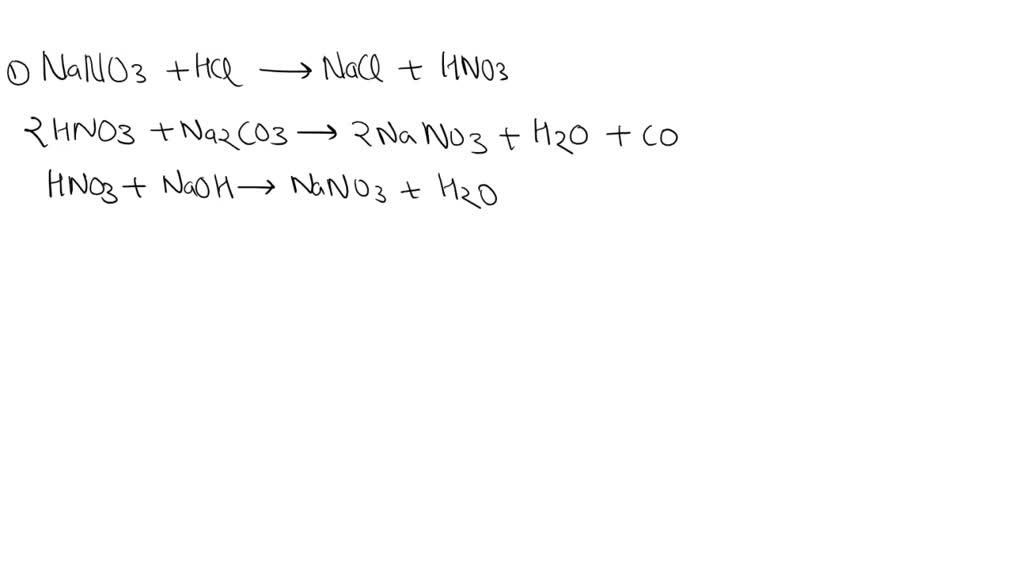 ① NaNO3 + HCl → NaCl + HNO3
2HNO3 + Na2CO3 → 2NaNO3 + H2O + CO
HNO3 + NaOH → NaNO3 + H2O